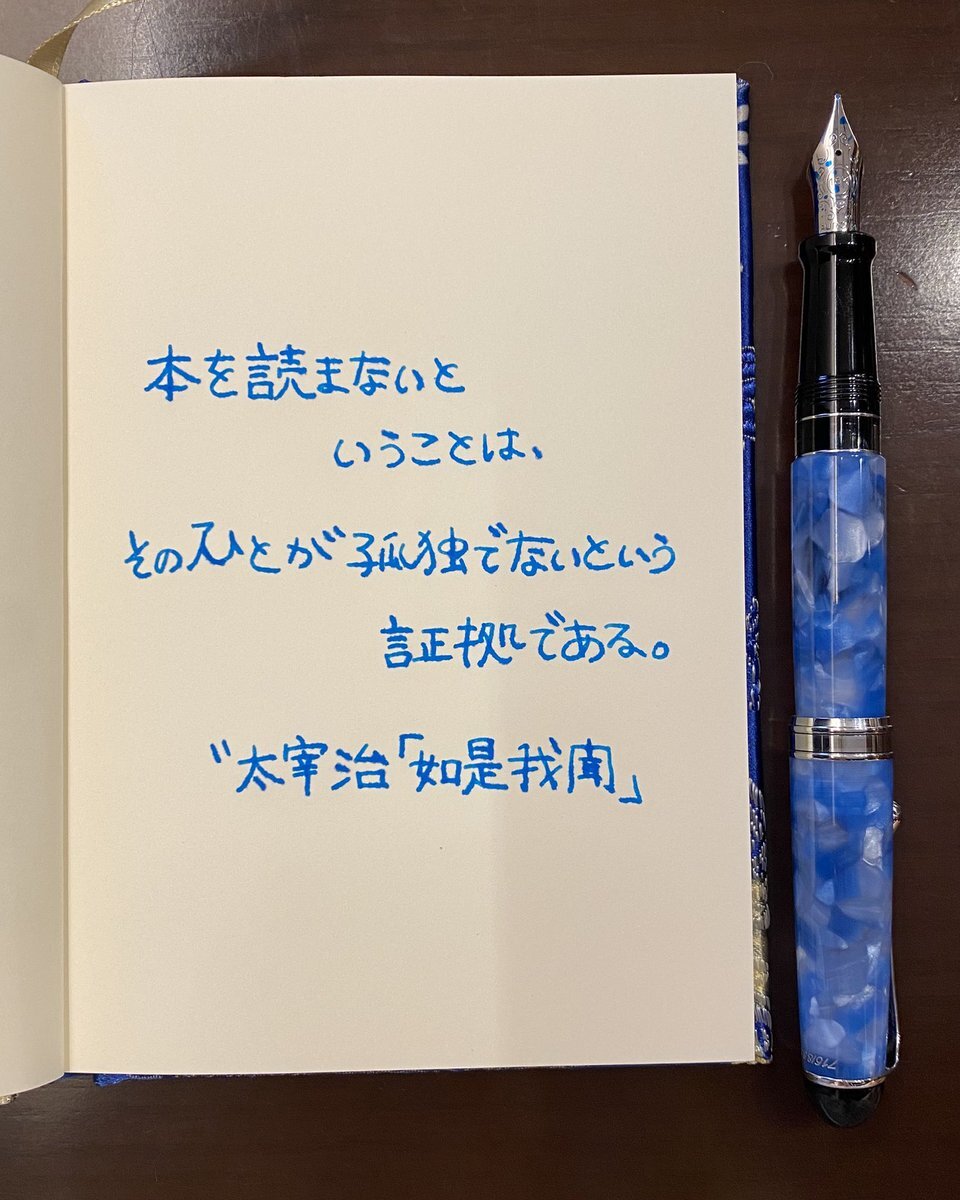 本を読まないと
いうことは、
そのひとが孤独でないという
証拠である。
〃太宰治「如是我聞」